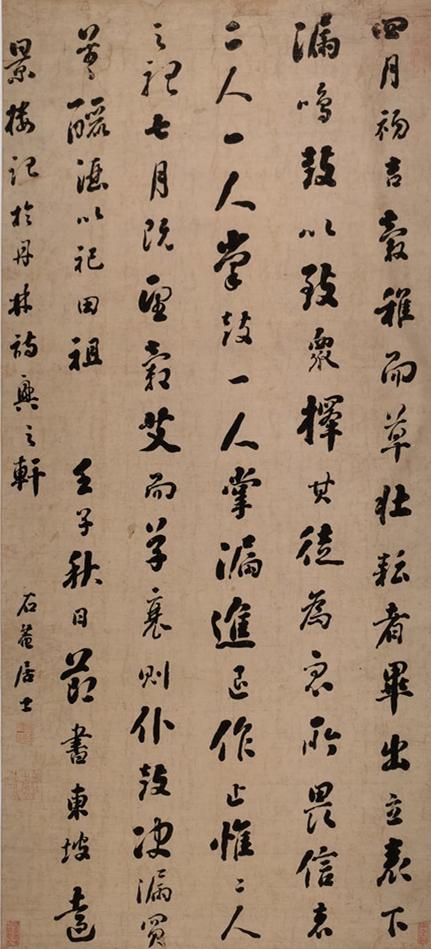 四月初吉穀稚而草壯耘者畢出立表下
漏鳴鼓以致眾擇其徒為眾所畏信者
二人一人掌鼓一人掌漏進退作止惟二人
之聽七月既望穀艾而草衰則仆鼓決漏買
羊以祀田祖 壬子秋日節書東坡遠
景樓記於丹林詩興之軒 石菴居士